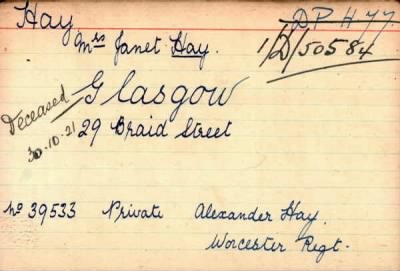 Hay
D P H 77
Mrs Janet Hay.
1/D/50584
Glasgow
Deceased 30-10-21
29 Braid Street
No 39533 Private Alexander Hay.
Worcester Regt.